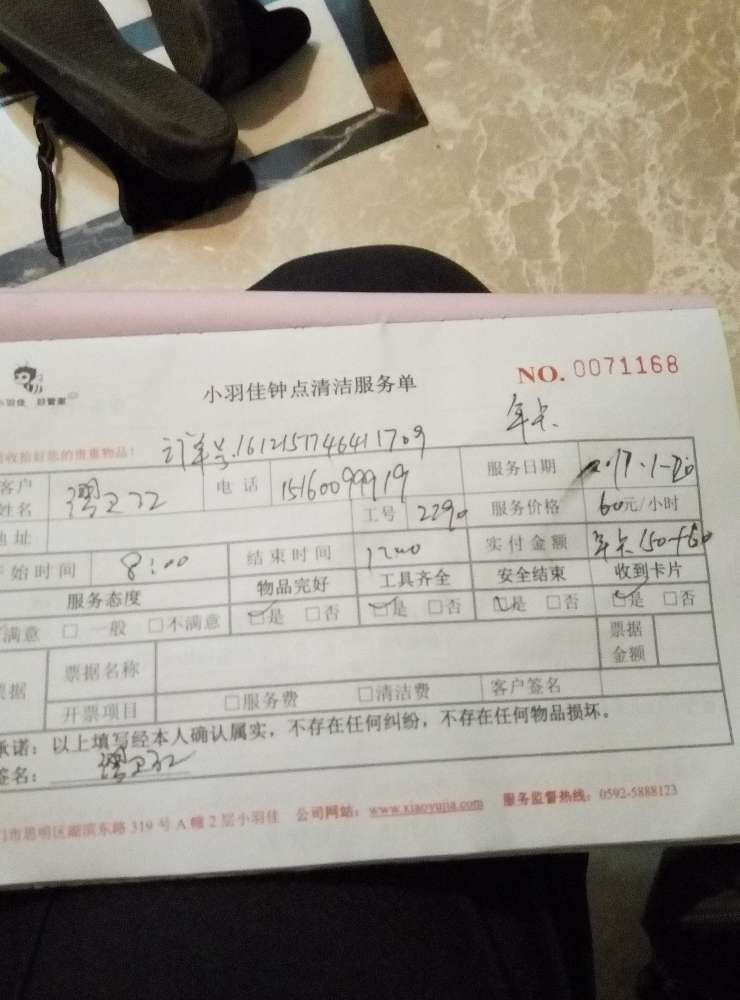 小羽佳钟点清洁服务单 NO. 0071168
小羽佳 好管家
收拾好您的贵重物品! 订单号.161215774641709 年卡
客户姓名 电话 15160099919 服务日期 2017.1.20
地址 工号 2290 服务价格 60元/小时
始时间 8:00 结束时间 1200 实付金额 年卡150+60
服务态度 物品完好 工具齐全 安全结束 收到卡片
满意 □ 一般 □不满意 □是 □否 □是 □否 □是 □否 □是 □否
票据名称 票据金额
据 开票项目 □服务费 □清洁费 客户签名
承诺：以上填写经本人确认属实，不存在任何纠纷，不存在任何物品损坏。
签名：
门市思明区湖滨东路 319 号 A 幢 2 层小羽佳 公司网站：www.xiaoyujia.com 服务监督热线：0592-5888123